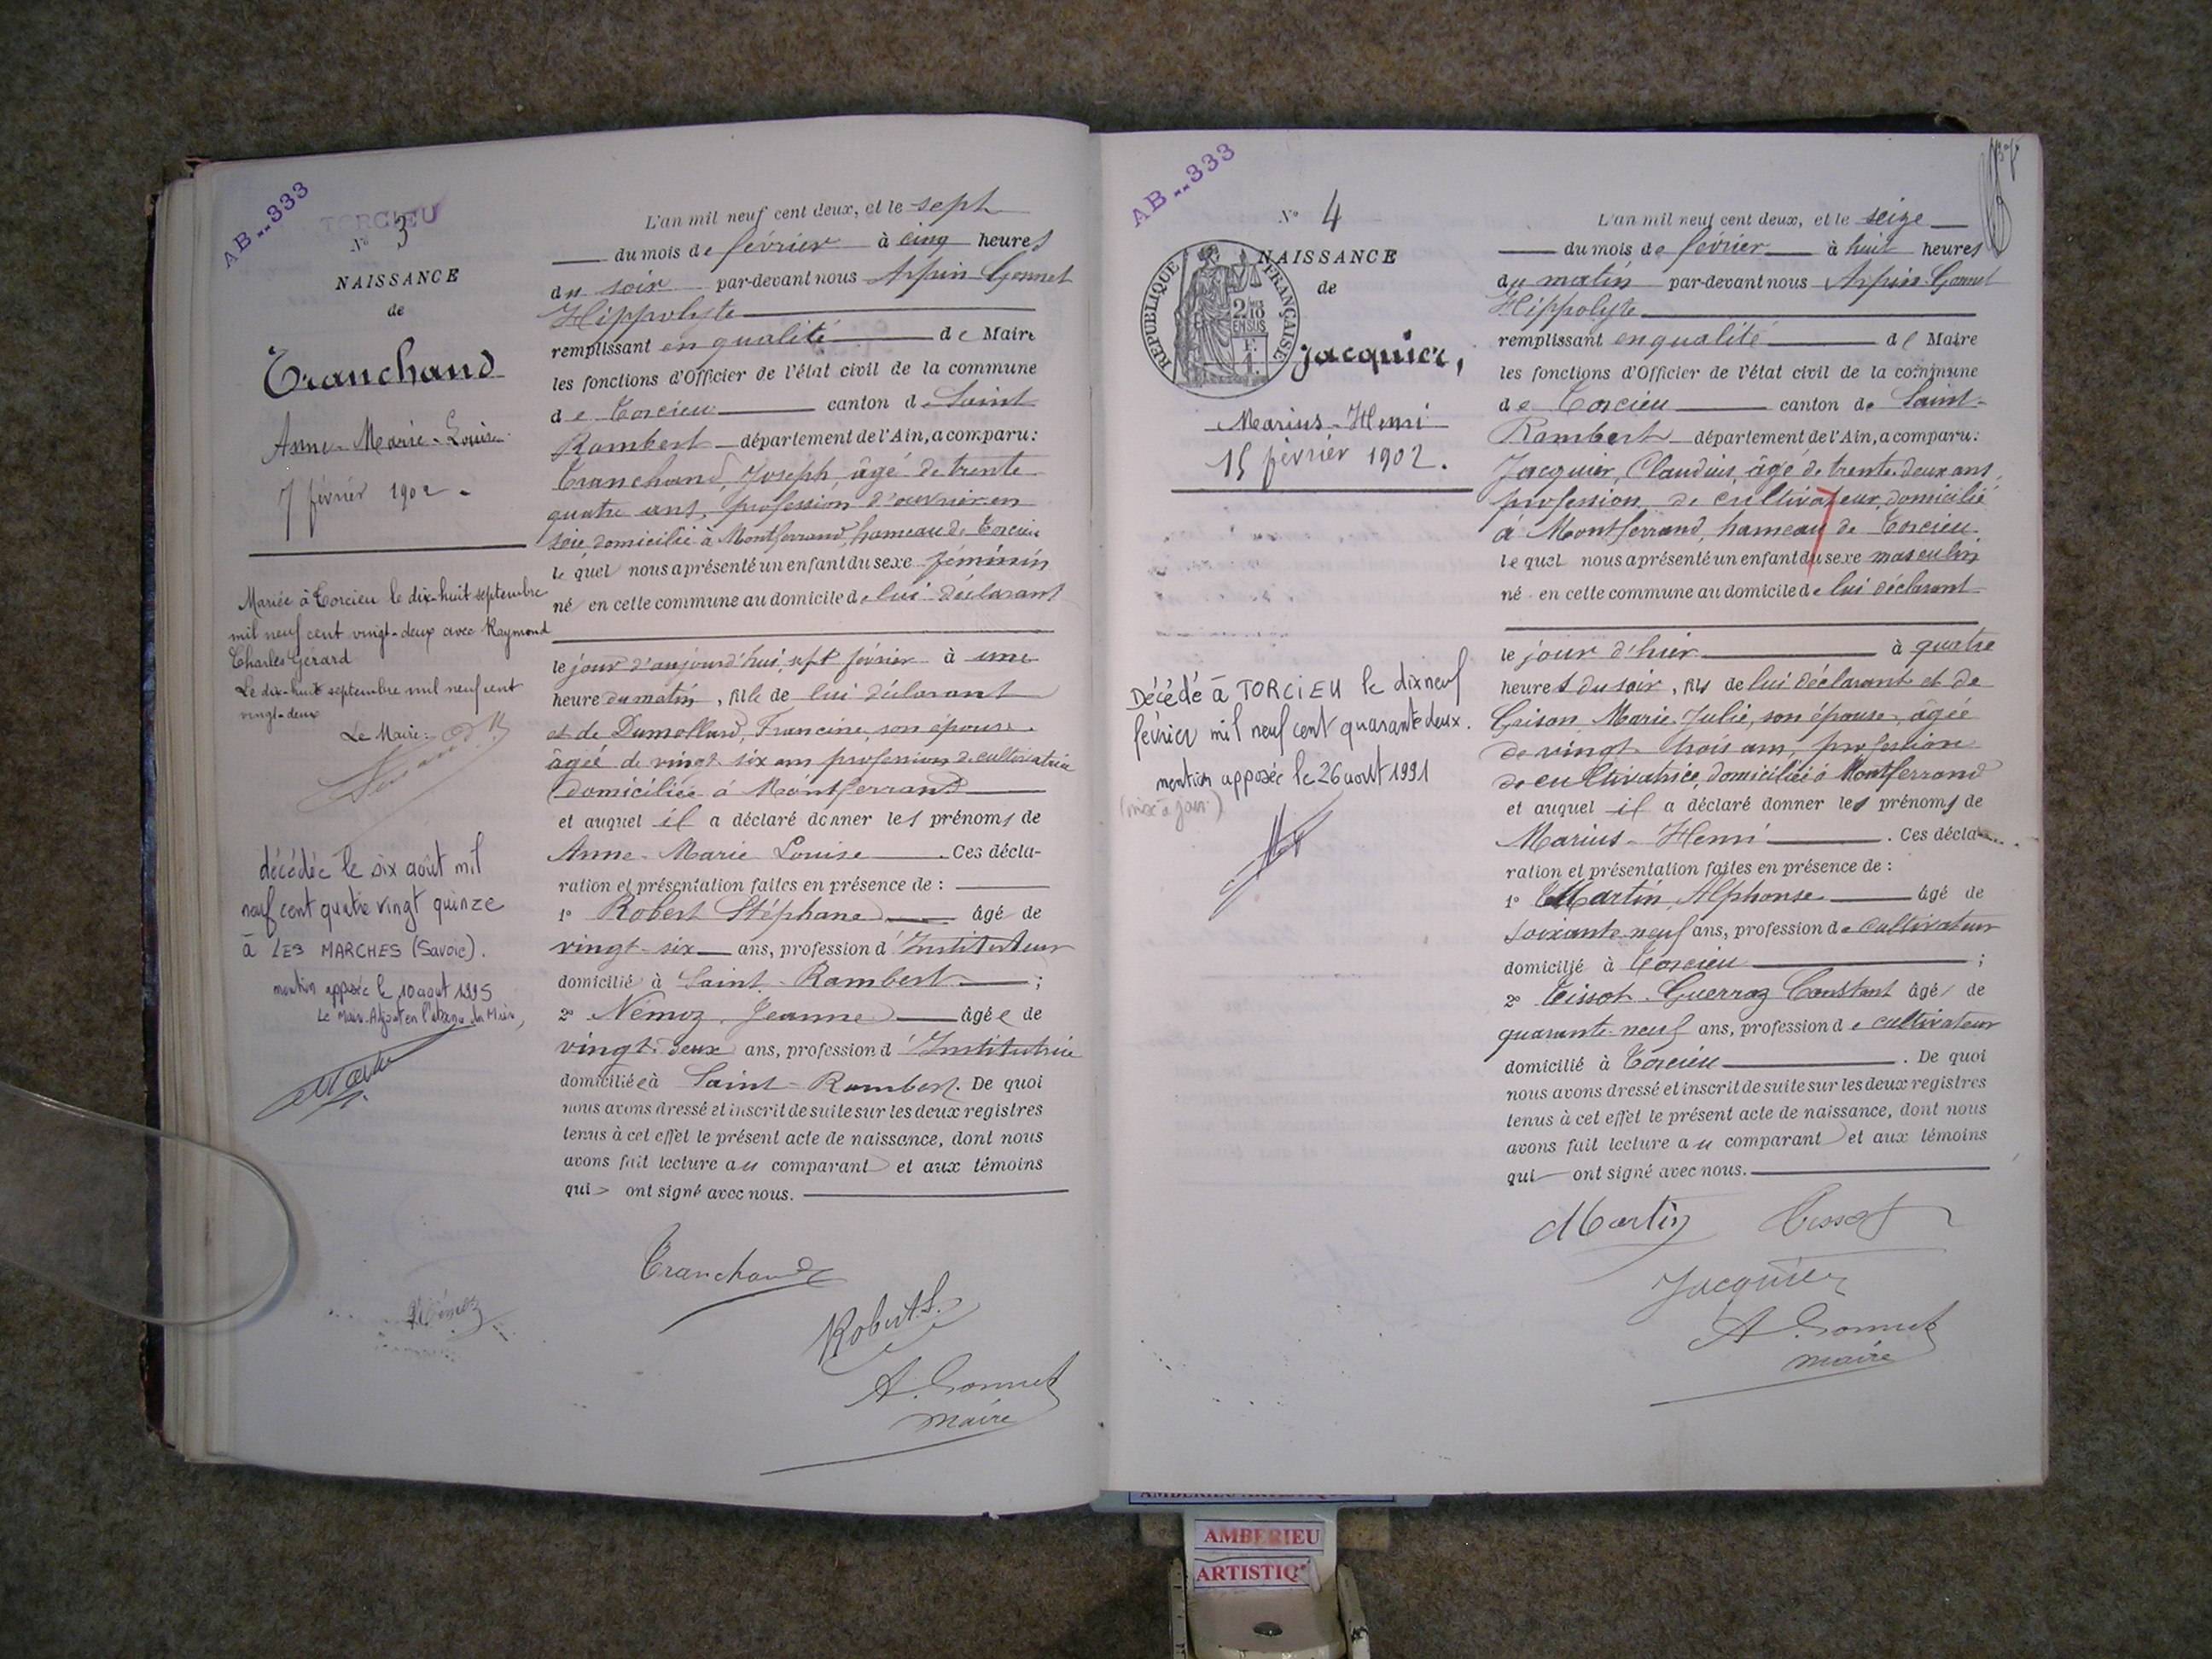 AB--333
TORCIEU
N° 3
NAISSANCE
de
Tranchand
Anne-Marie-Louise
7 février 1902.
Mariée à Torcieu le dix-huit septembre
mil neuf cent vingt-deux avec Raymond
Charles Gérard
Le dix-huit septembre mil neuf cent
vingt-deux
Le Maire:
décédée le six août mil
neuf cent quatre vingt quinze
à LES MARCHES (Savoie).
mention apposée le 10 aout 1995
Le Maire-Adjoint en l'absence du Maire,
L'an mil neuf cent deux, et le sept
du mois de février à cinq heures
du soir par-devant nous Arpin-Gonnet
Hippolyte
remplissant en qualité de Maire
les fonctions d'Officier de l'état civil de la commune
de Torcieu canton de Saint
Rambert département de l'Ain, a comparu:
Tranchand, Joseph, âgé de trente
quatre ans, profession d'ouvrier en
soie domicilié à Montferrand, hameau de Torcieu
lequel nous a présenté un enfant du sexe féminin
né en cette commune au domicile de lui déclarant
le jour d'aujourd'hui, sept février à une
heure du matin, fille de lui déclarant
et de Dumollard, Francine, son épouse.
âgée de vingt-six ans profession de cultivatrice
domiciliée à Montferrand
et auquel il a déclaré donner les prénoms de
Anne-Marie Louise. Ces décla-
ration et présentation faites en présence de :
1° Robert Stéphane âgé de
vingt-six ans, profession d'Instituteur
domicilié à Saint-Rambert ;
2° Némoz, Jeanne âgée de
vingt-deux ans, profession d'Institutrice
domiciliée à Saint-Rambert. De quoi
nous avons dressé et inscrit de suite sur les deux registres
tenus à cet effet le présent acte de naissance, dont nous
avons fait lecture au comparant et aux témoins
qui ont signé avec nous.
Tranchand
Némoz
Robert S.
A. Gonnet
maire
AB--333
N° 4
NAISSANCE
de
REPUBLIQUE FRANÇAISE
2/10
EN SUS
Jacquier,
Marius-Henri
15 février 1902.
Décédé à TORCIEU le dix neuf
février mil neuf cent quarante deux.
mention apposée le 26 aout 1991
(mise à jour)
L'an mil neuf cent deux, et le seize
du mois de février à huit heures
du matin par-devant nous Arpin-Gonnet
Hippolyte
remplissant en qualité de Maire
les fonctions d'Officier de l'état civil de la commune
de Torcieu canton de Saint-
Rambert département de l'Ain, a comparu:
Jacquier, Claudius, âgé de trente-deux ans,
profession de cultivateur, domicilié
à Montferrand, hameau de Torcieu
lequel nous a présenté un enfant du sexe masculin
né en cette commune au domicile de lui déclarant
le jour d'hier à quatre
heures du soir, fils de lui déclarant et de
Grison Marie-Julie, son épouse, âgée
de vingt trois ans, profession
de cultivatrice, domiciliée à Montferrand
et auquel il a déclaré donner les prénoms de
Marius-Henri. Ces décla-
ration et présentation faites en présence de :
1° Martin, Alphonse âgé de
soixante-neuf ans, profession de cultivateur
domicilié à Torcieu ;
2° Tissot-Guerraz Constant âgé de
quarante-neuf ans, profession de cultivateur
domicilié à Torcieu. De quoi
nous avons dressé et inscrit de suite sur les deux registres
tenus à cet effet le présent acte de naissance, dont nous
avons fait lecture au comparant et aux témoins
qui ont signé avec nous.
Martin Tissot
Jacquier
A. Gonnet
maire
AMBERIEU
ARTISTIQ